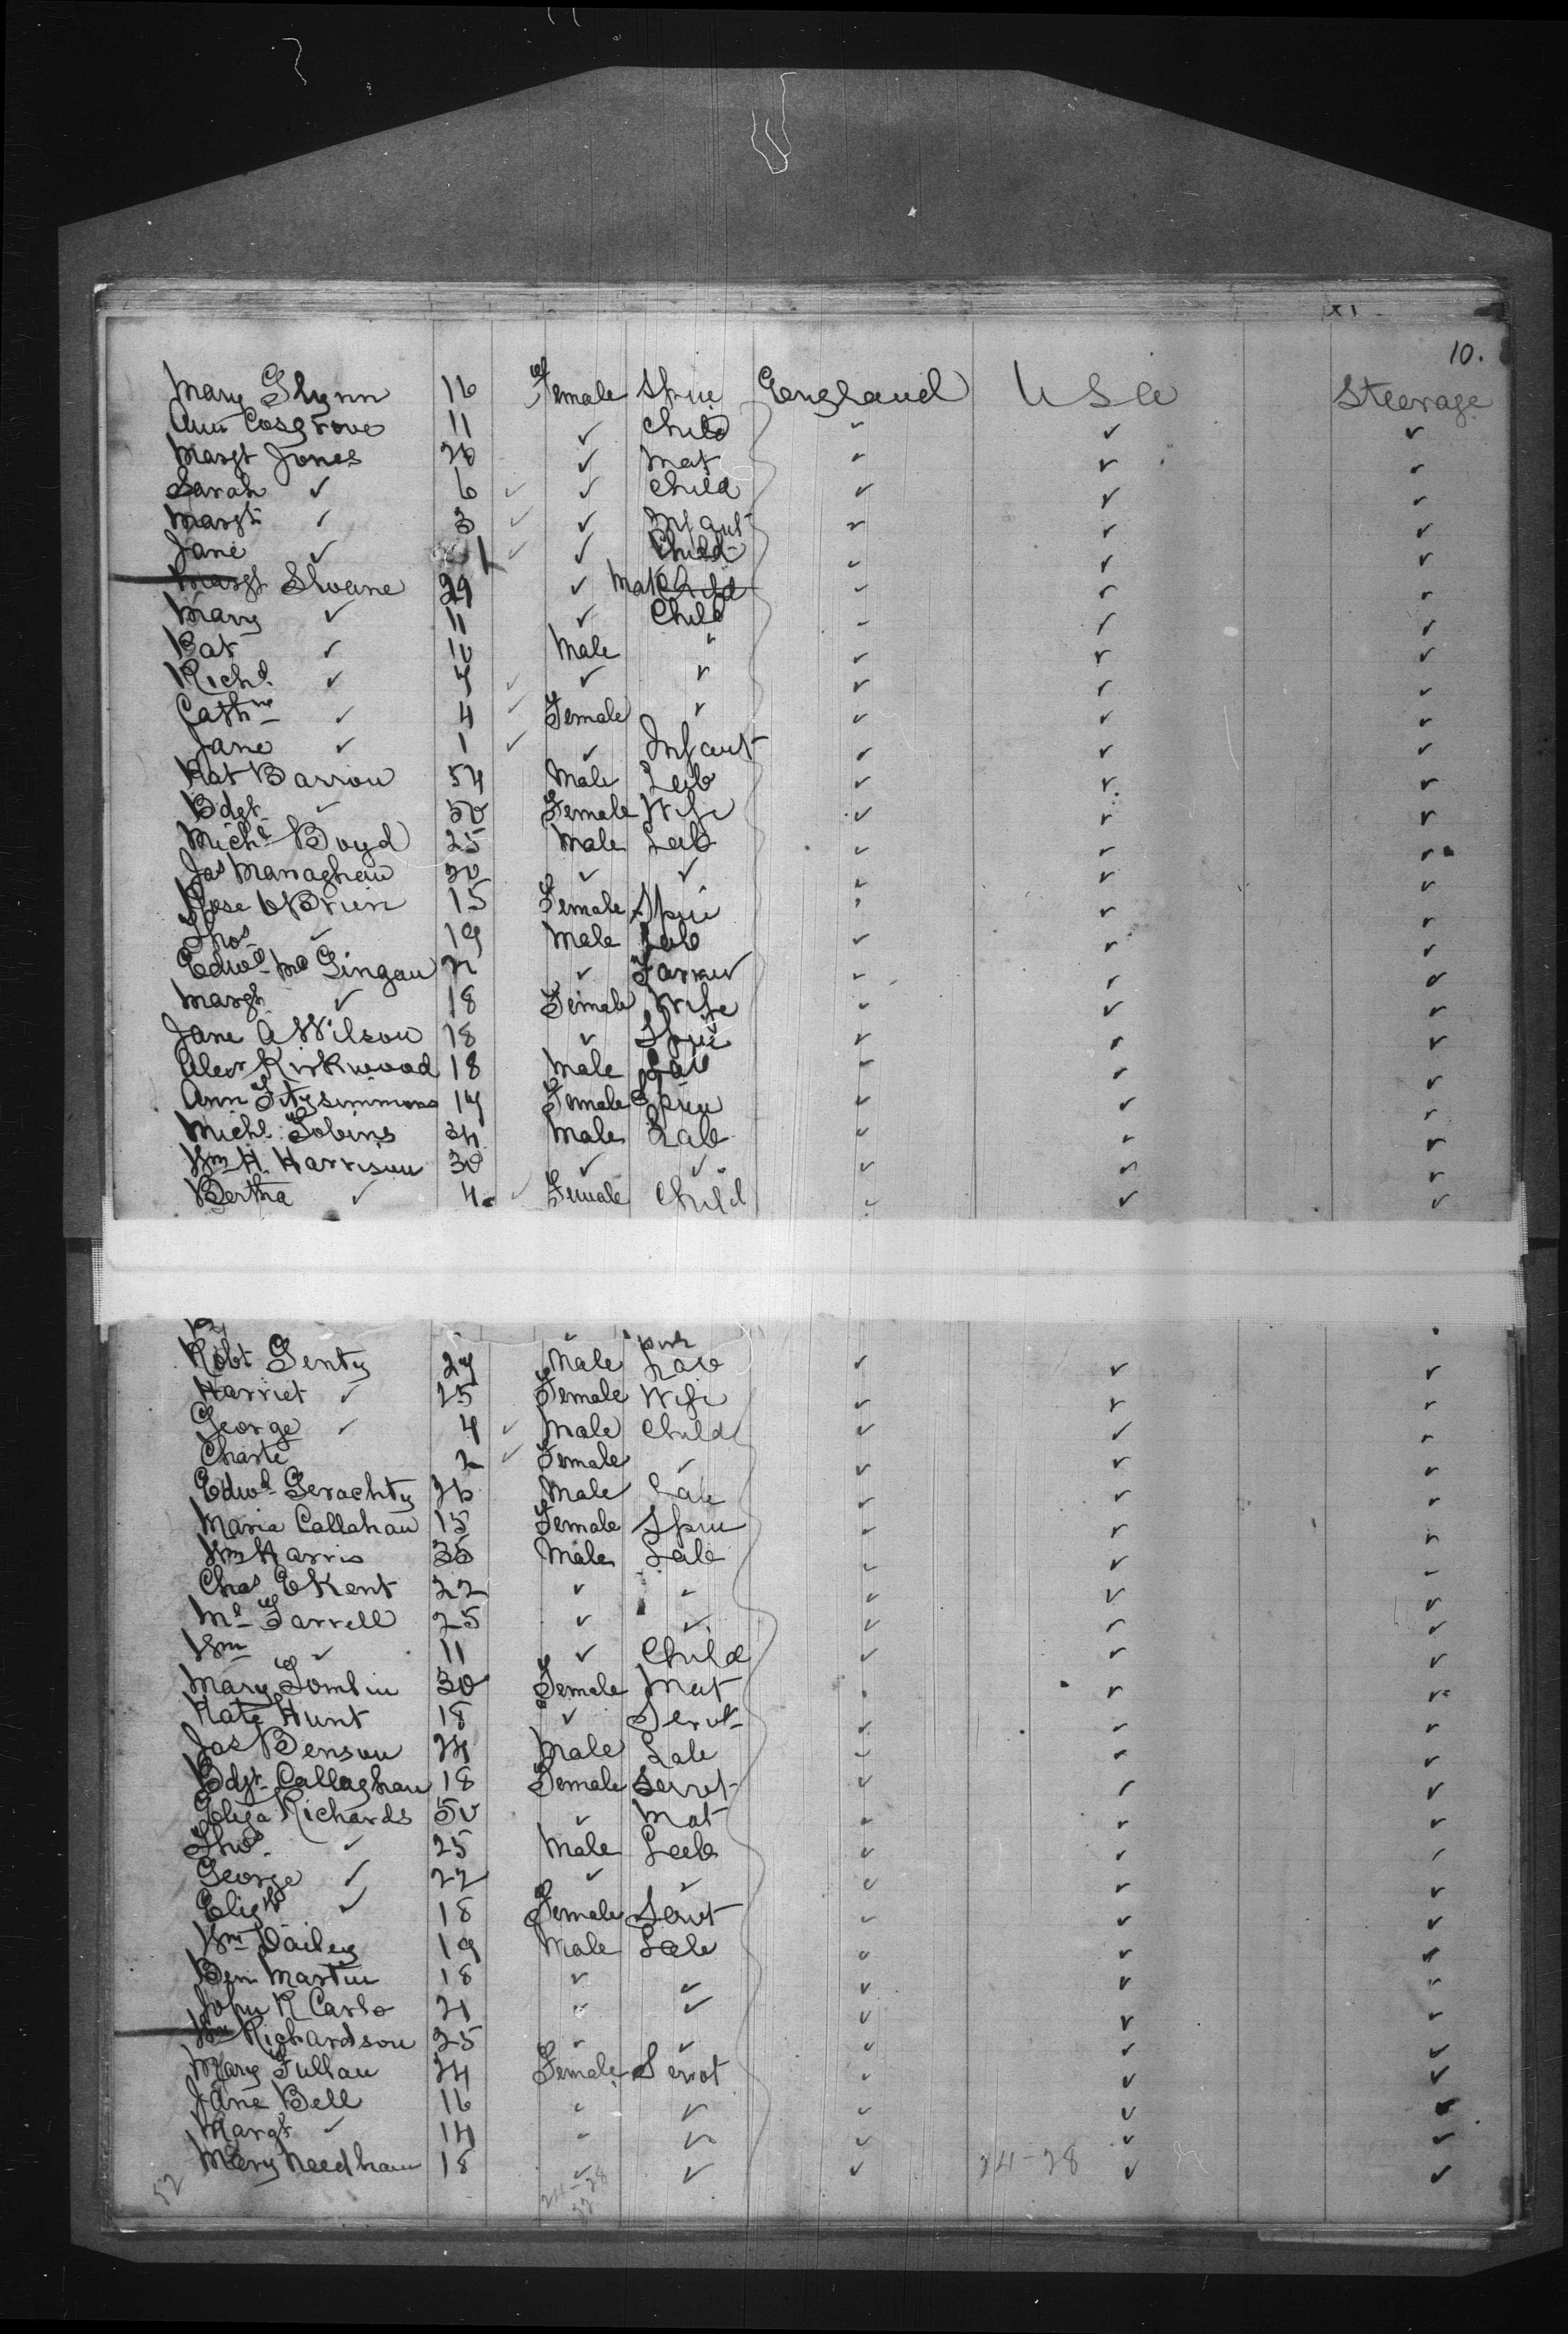 XI
10.
Mary Glynn 16 Female Spin England USA Steerage
Ann Cosgrove 11 ✓ Child ✓ ✓ ✓
Margt Jones 26 ✓ Mat ✓ ✓ ✓
Sarah ✓ 6 ✓ ✓ Child ✓ ✓ ✓
Margt ✓ 3 ✓ ✓ Infant ✓ ✓ ✓
Jane ✓ ✓ ✓ Child ✓ ✓ ✓
Margt Sloane 29 ✓ Mat Child ✓ ✓ ✓
Mary ✓ 11 ✓ Child ✓ ✓ ✓
Pat ✓ 10 Male " ✓ ✓ ✓
Richd ✓ 7 ✓ ✓ ✓ ✓ ✓ ✓
Cathne ✓ 4 ✓ Female ✓ ✓ ✓ ✓
Jane ✓ 1 ✓ ✓ Infant ✓ ✓ ✓
Pat Barron 54 Male Lab ✓ ✓ ✓
Bdgt ✓ 50 Female Wife ✓ ✓ ✓
Michl Boyd 25 Male Lab ✓ ✓ ✓
Jas Managhan 20 ✓ ✓ ✓ ✓ ✓
Rose OBrien 15 Female Spin ✓ ✓ ✓
Thos ✓ 19 Male Lab ✓ ✓ ✓
Edwd Mc Gingan ✓ Farmer ✓ ✓ ✓
Margt ✓ 18 Female Wife ✓ ✓ ✓
Jane A Wilson 18 ✓ Spin ✓ ✓ ✓
Alexr Kirkwood 18 Male Lab ✓ ✓ ✓
Ann Fitzsimmons 17 Female Spin ✓ ✓ ✓
Michl Tobins 24 Male Lab ✓ ✓ ✓
Wm H. Harrison 30 ✓ ✓ ✓ ✓ ✓
Bertha ✓ 4 ✓ Female Child ✓ ✓ ✓
Robt Genty 27 Male Lab ✓ ✓ ✓
Harriet ✓ 25 Female Wife ✓ ✓ ✓
George ✓ 4 ✓ Male Child ✓ ✓ ✓
2 ✓ Female ✓ ✓ ✓ ✓
Edwd Gerachty 26 Male Lab ✓ ✓ ✓
Maria Callahan 15 Female Spin ✓ ✓ ✓
Wm Harris 35 Male Lab ✓ ✓ ✓
Chas E Kent 22 ✓ ✓ ✓ ✓ ✓
Ml Farrell 25 ✓ ✓ ✓ ✓ ✓
Wm ✓ 11 ✓ Child ✓ ✓ ✓
Mary Tomlin 30 Female Mat ✓ ✓ ✓
Kate Hunt 18 ✓ Servt ✓ ✓ ✓
Jas Benson 24 Male Lab ✓ ✓ ✓
Bdgt Callaghan 18 Female Servt ✓ ✓ ✓
Eliza Richards 50 ✓ Mat ✓ ✓ ✓
Thos ✓ 25 Male Lab ✓ ✓ ✓
George ✓ 22 ✓ ✓ ✓ ✓ ✓
Elizth ✓ 18 Female Servt ✓ ✓ ✓
Wm Dailey 19 Male Lab ✓ ✓ ✓
Ben Martin 18 ✓ ✓ ✓ ✓ ✓
John R Carlo 21 ✓ ✓ ✓ ✓ ✓
Wm Richardson 25 ✓ ✓ ✓ ✓ ✓
Mary Fullan 24 Female Servt ✓ ✓ ✓
Jane Bell 16 ✓ ✓ ✓ ✓ ✓
Margt ✓ 14 ✓ ✓ ✓ ✓ ✓
Mary Needham 18 ✓ ✓ ✓ 24-28 ✓ ✓
52 24-28